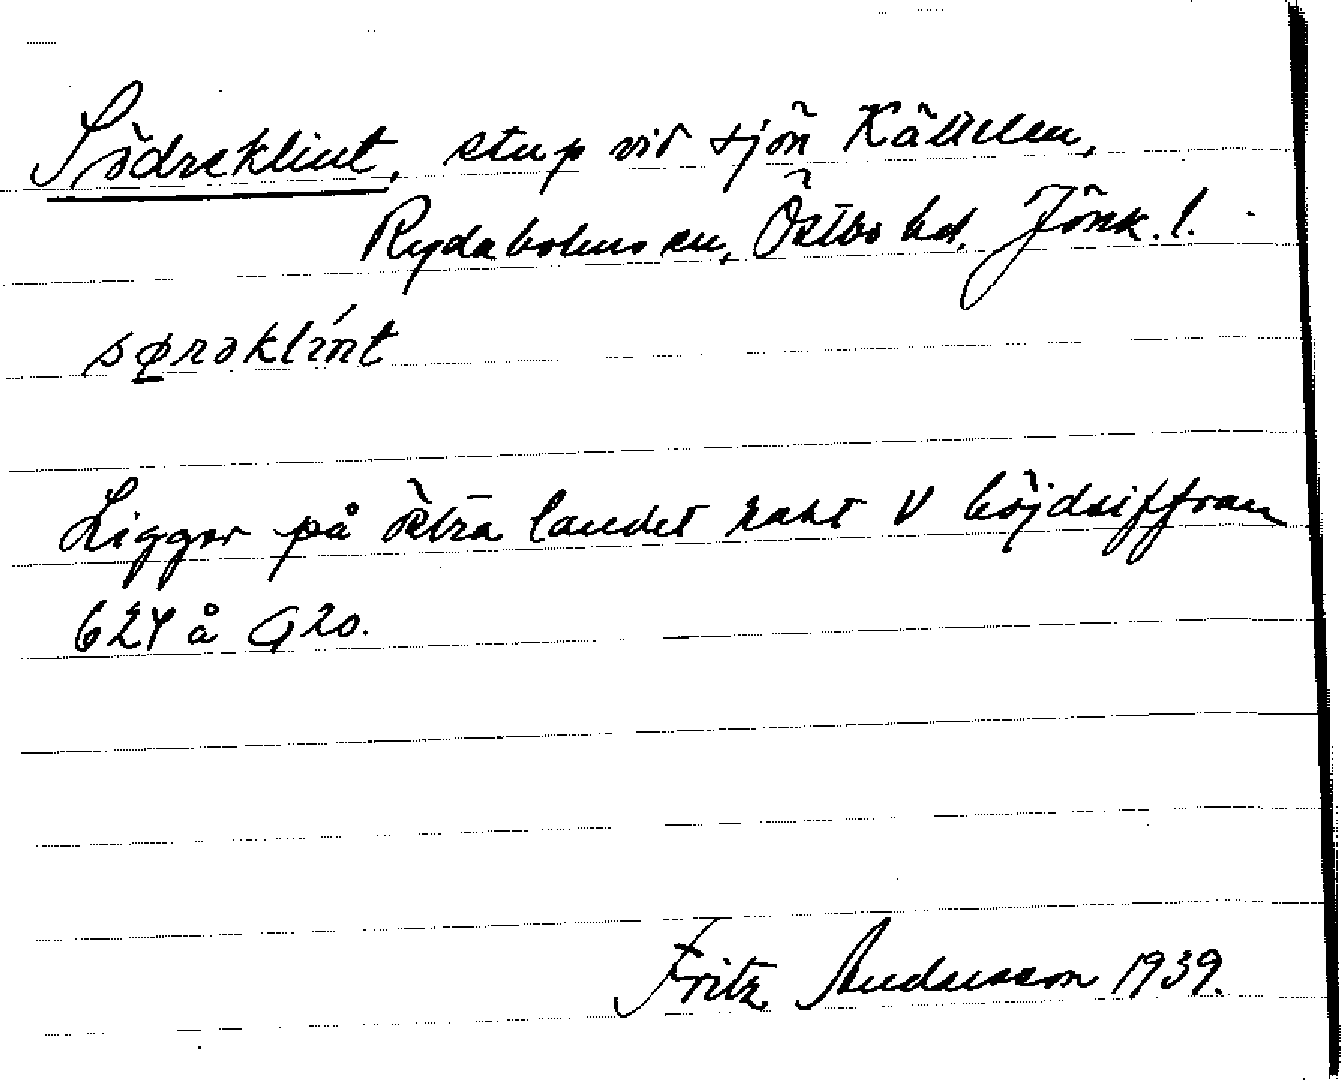 Södreklint, stup vid sjön Kälden,
Rydaholms sn, Östbo hd. Jönk. l.
sørəklínt
Ligger på östra landet rakt V höjdsiffran
624 å G20.
Fritz Andersson 1939.